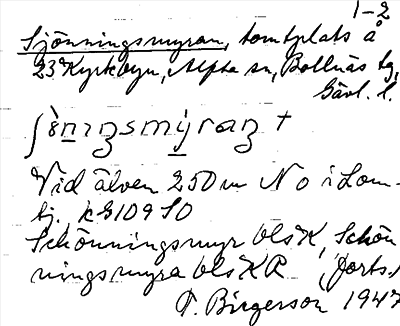 1-2
Sjönningsmyran, tomtplats å
23 Kyrkbyn, Alfta sn, Bollnäs tg,
Gävl. l.
Vid älven 250 m N o i Lom-
tj. k 3109 SO
Schönningsmyr bls K, Schön
ningsmyra bls KR (forts.)
T. Birgerson 1947